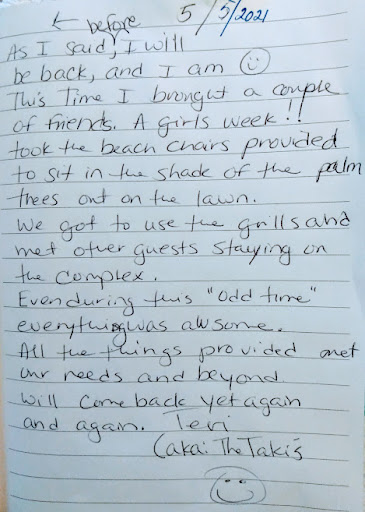 ← before 5/5/2021
As I said, I will
be back, and I am ☺
This Time I brought a couple
of friends. A girls week!!
took the beach chairs provided
to sit in the shade of the palm
trees out on the lawn.
We got to use the grills and
met other guests staying on
the complex.
Even during this "odd time"
everything was awsome.
All the things provided met
our needs and beyond.
will come back yet again
and again. Teri
(aka: The Taki's